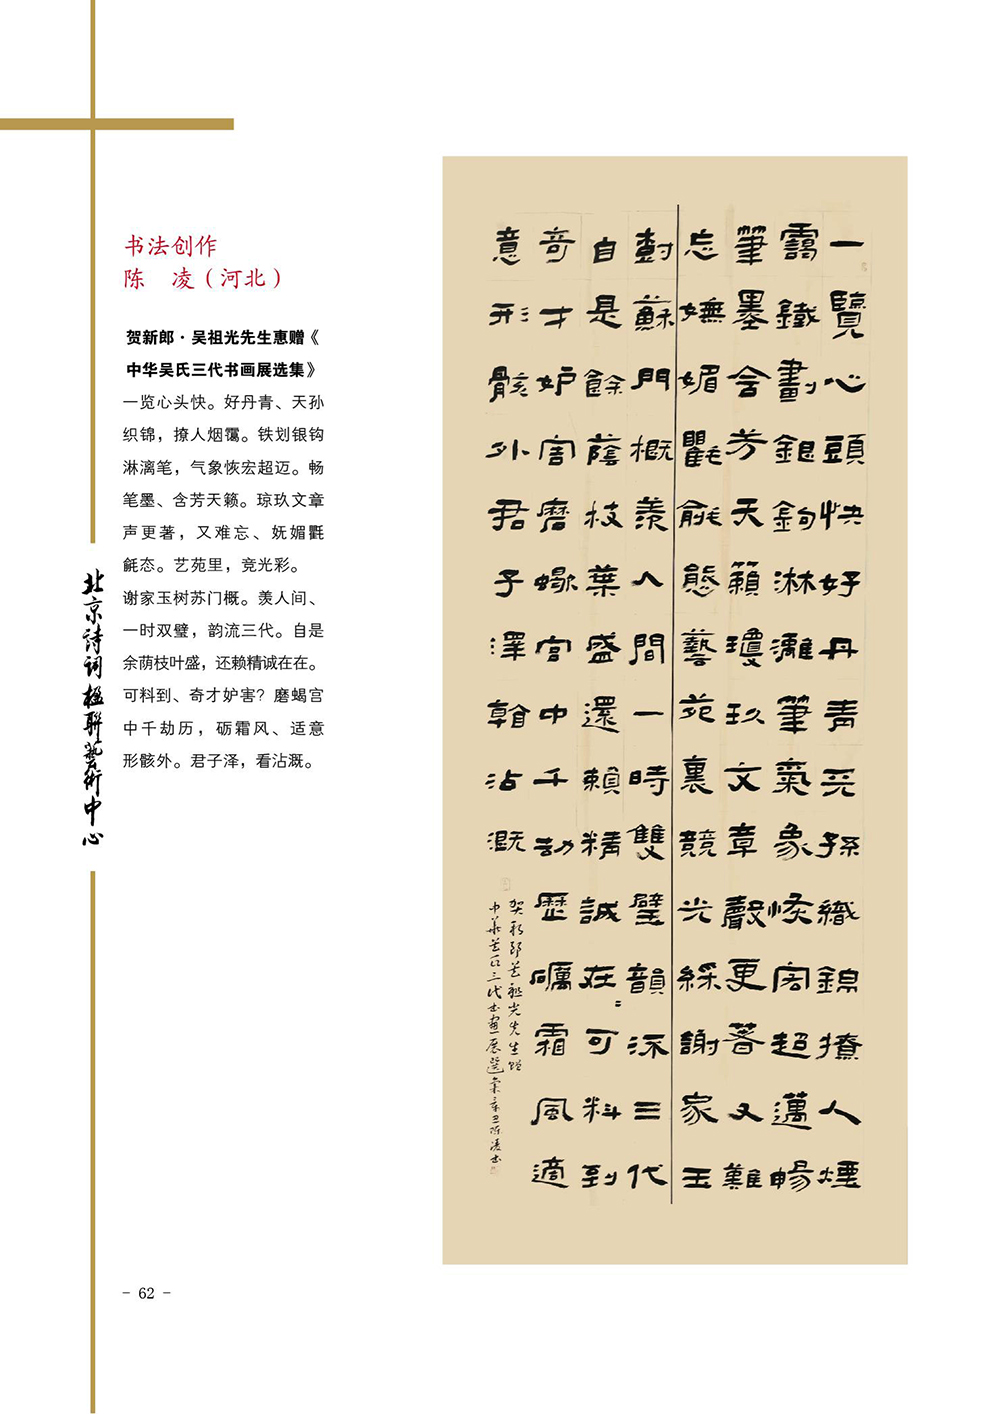 书法创作
陈 凌（河北）
贺新郎·吴祖光先生惠赠《
中华吴氏三代书画展选集》
一览心头快。好丹青、天孙
织锦，撩人烟霭。铁划银钩
淋漓笔，气象恢宏超迈。畅
笔墨、含芳天籁。琼玖文章
声更著，又难忘、妩媚氍
毹态。艺苑里，竞光彩。
谢家玉树苏门概。羡人间、
一时双璧，韵流三代。自是
余荫枝叶盛，还赖精诚在在。
可料到、奇才妒害？磨蝎宫
中千劫历，砺霜风、适意
形骸外。君子泽，看沾溉。
北京詩詞楹聯藝術中心
一覽心頭快好丹青天孫織錦撩人煙
靄鐵劃銀鉤淋灕筆氣象恢宏超邁暢
筆墨含芳天籟瓊玖文章聲更著又難
忘嫵媚氍毹態藝苑裏競光綵謝家玉
樹蘇門概羨人間一時雙璧韻流三代
自是餘蔭枝葉盛還賴精誠在〻可料到
奇才妒害磨蠍宮中千劫歷礪霜風適
意形骸外君子澤看沾溉
贺新郎吴祖光先生赠
中華吴氏三代书畫展選集辛丑陈凌书
- 62 -